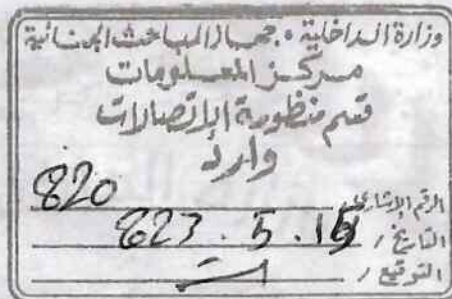 وزارة الداخلية • جهاز المباحث الجنائية
مركز المعلومات
قسم منظومة الإتصالات
وارد
الرقم الإشاري 820
التاريخ / 15 . 5 . 223
التوقيع /